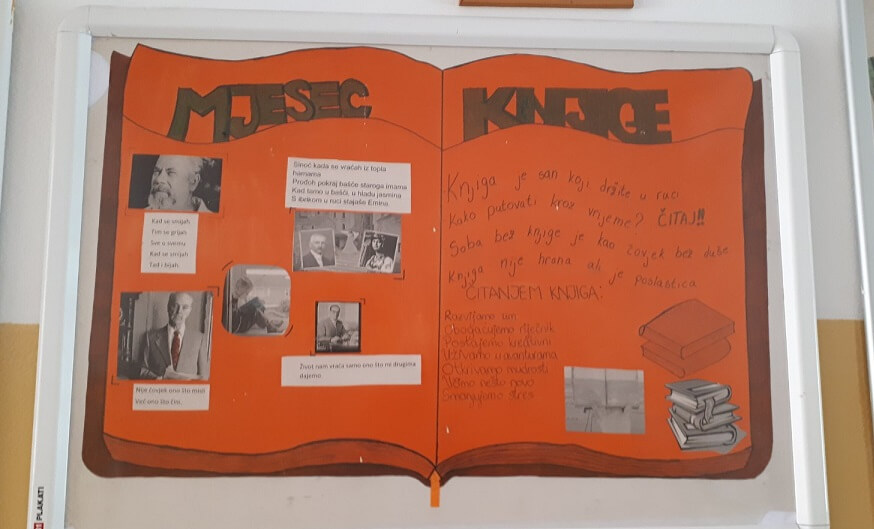 MJESEC
KNJIGE
Sinoć kada se vraćah iz topla
hamama
Prođoh pokraj bašče staroga imama
Kad tamo u bašči, u hladu jasmina
S ibrikom u ruci stajaše Emina.
Kad se smijah
Tim se grijah
Sve u svemu
Kad se smijah
Tad i bijah.
Nije čovjek ono što misli
Već ono što čini.
Život nam vraća samo ono što mi drugima
dajemo.
Knjiga je san koji držite u ruci
Kako putovati kroz vrijeme? ČITAJ!!
Soba bez knjige je kao čovjek bez duše
Knjiga nije hrana ali je poslastica
ČITANJEM KNJIGA:
Razvijamo um
Obogaćujemo rječnik
Postajemo kreativni
Uživamo u avanturama
Otkrivamo mudrosti
Učimo nešto novo
Smanjujemo stres
PLAKATI